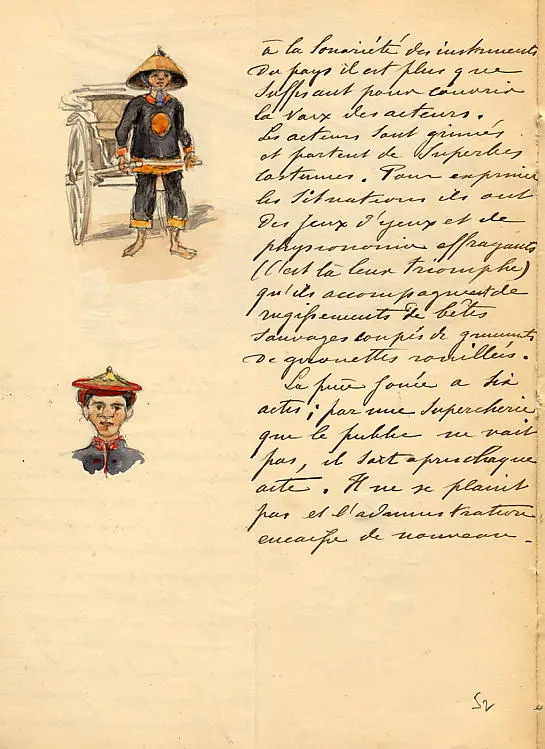 à la sonorité des instruments
du pays il est plus que
suffisant pour couvrir
la voix des acteurs.
Les acteurs sont grimés
et portent de superbes
costumes. Pour exprimer
les situations ils ont
des jeux d'yeux et de
physionomie effrayants
(C'est là leur triomphe)
qu'ils accompagnent de
rugissements de bêtes
sauvages coupés de
de girouettes rouillées.
La pièce jouée a six
actes ; par une supercherie
que le public ne voit
pas, il sort après chaque
acte. Il ne se plaint
pas et l'administration
encaisse de nouveau -
52